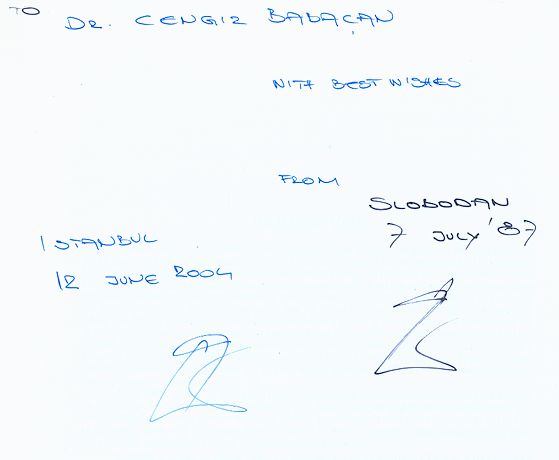 TO
DR. CENGIZ BABAÇAN
WITH BEST WISHES
FROM
SLOBODAN
7 JULY '87
ISTANBUL
12 JUNE 2004